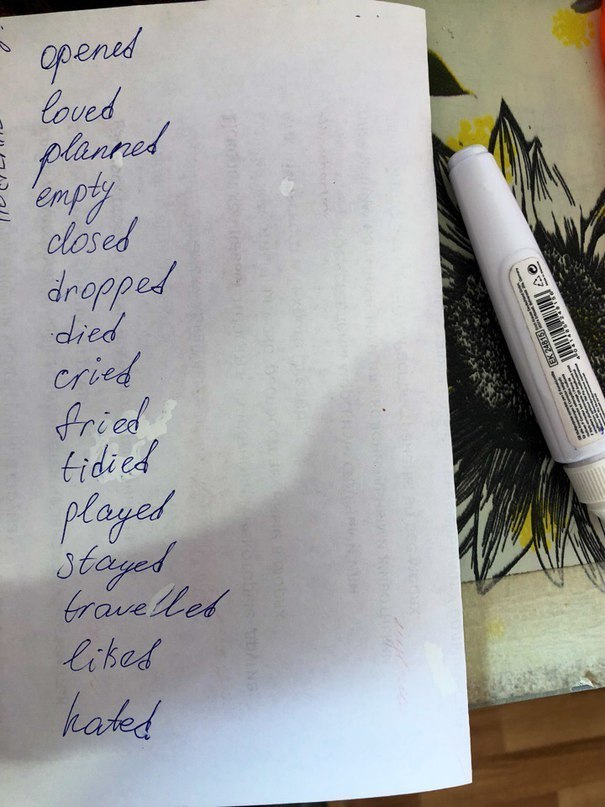 opened
loved
planned
empty
closed
dropped
died
cried
fried
tidied
played
stayed
travelled
liked
hated
EK 24615